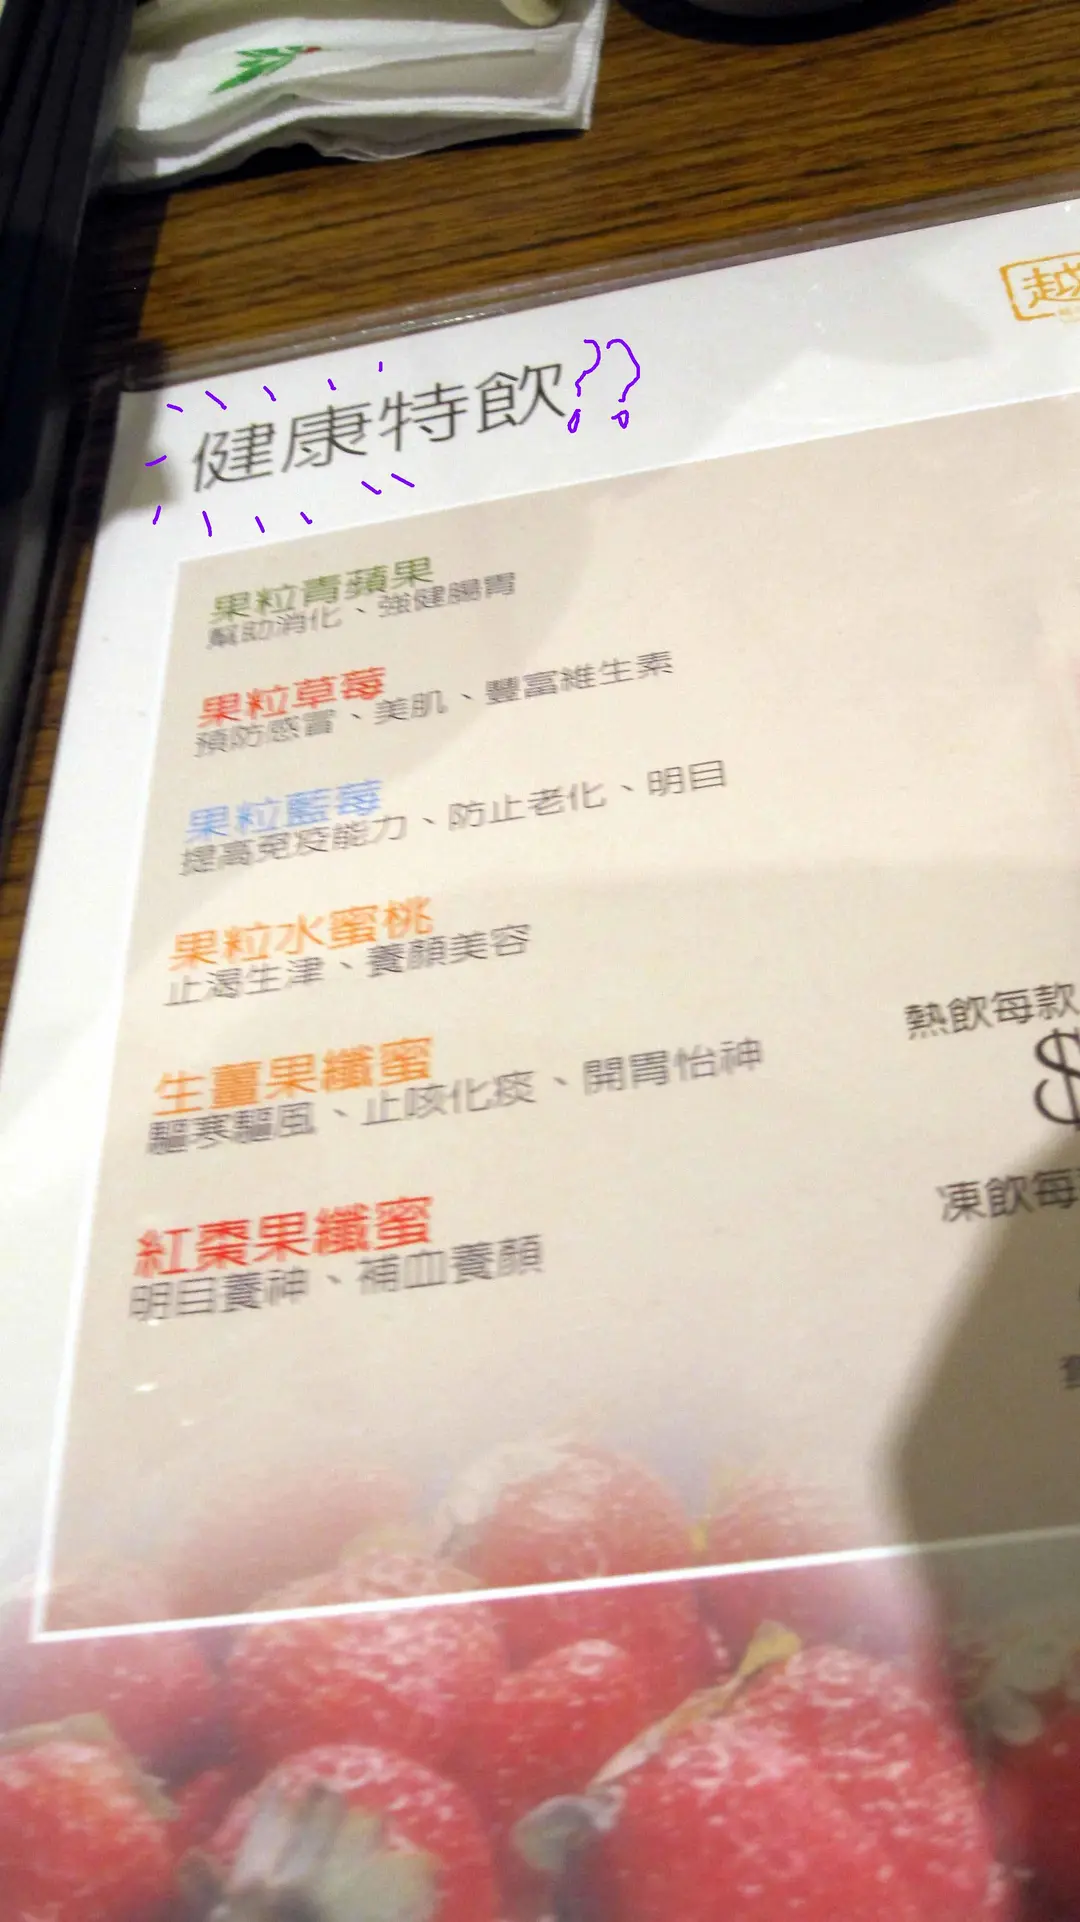 越
健康特飲??
果粒青蘋果
幫助消化、強健腸胃
果粒草莓
預防感冒、美肌、豐富維生素
果粒藍莓
提高免疫能力、防止老化、明目
果粒水蜜桃
止渴生津、養顏美容
生薑果纖蜜
驅寒驅風、止咳化痰、開胃怡神
紅棗果纖蜜
明目養神、補血養顏
熱飲每款
$
凍飲每